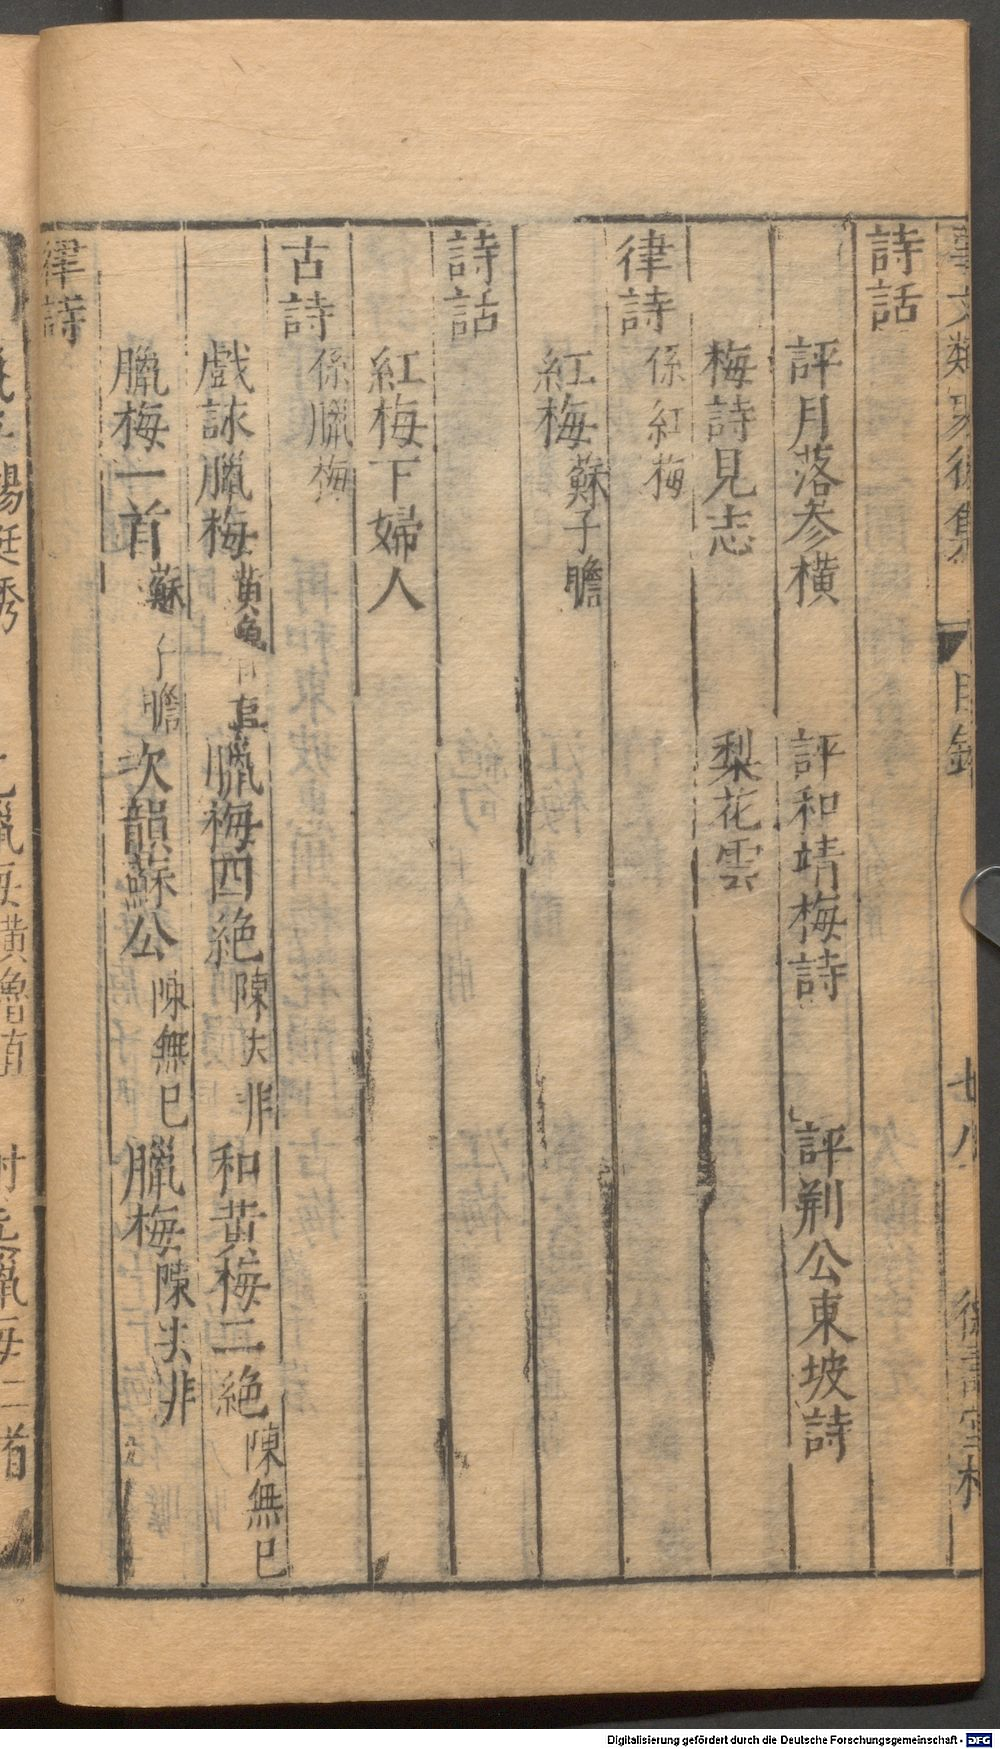 事文類聚後集 目録 七八
詩話
評月落参横 評和靖梅詩 評荆公東坡詩
梅詩見志 梨花雲
律詩 係紅梅
紅梅 蘇子瞻
詩話
紅梅下婦人
古詩 係臘梅
戯詠臘梅 黄魯直 臘梅四絶 陳去非 和黄梅二絶 陳無巳
臘梅一首 蘇子瞻 次韻蘇公 陳無巳 臘梅 陳去非
律詩
Digitalisierung gefördert durch die Deutsche Forschungsgemeinschaft - DFG